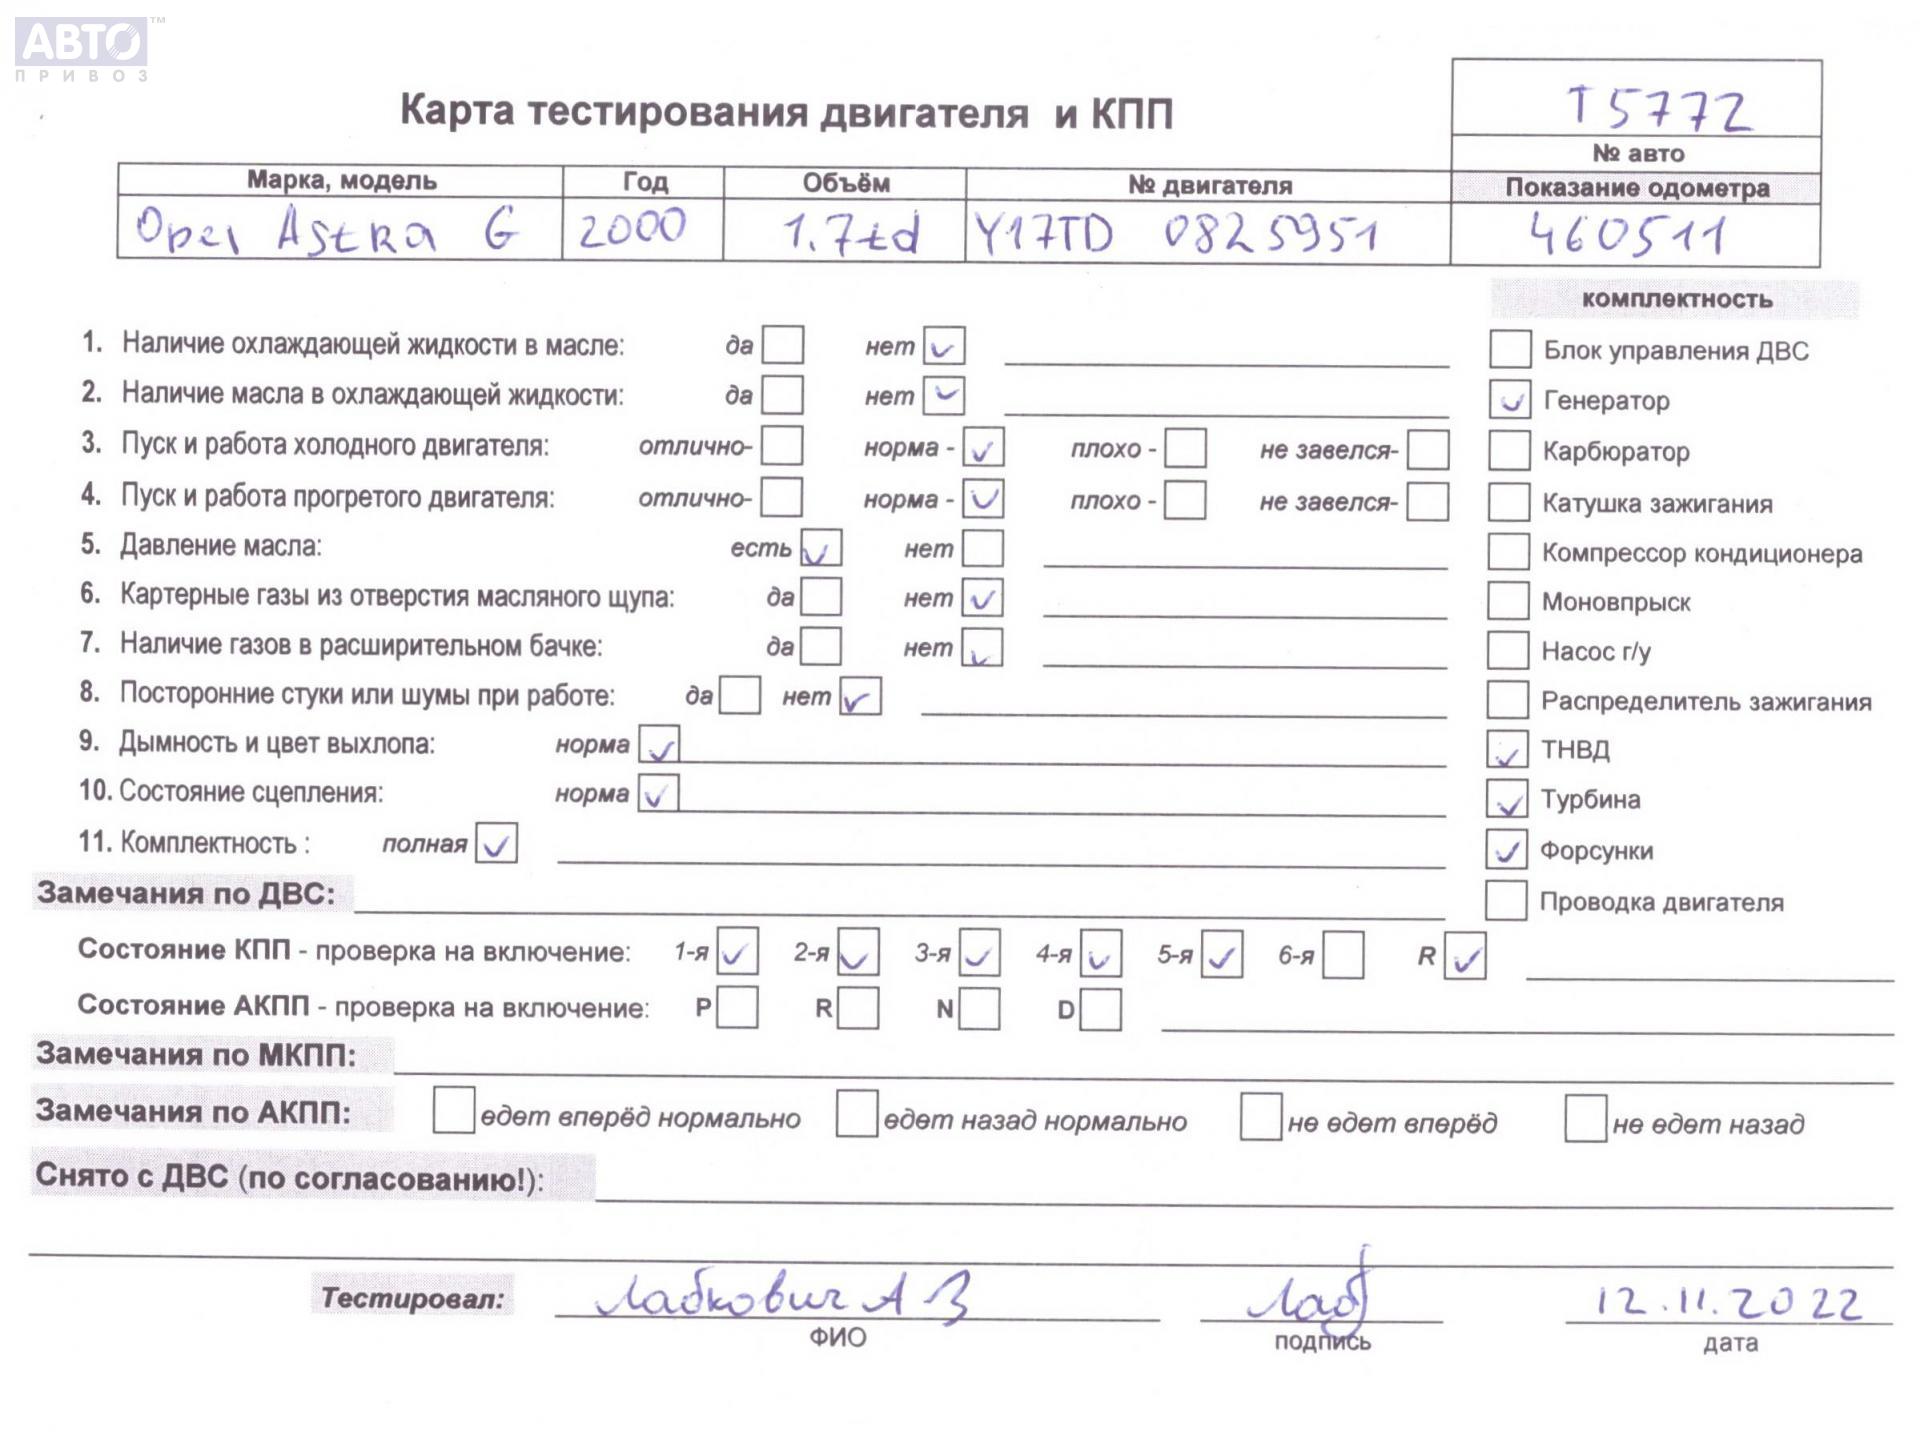 АВТО™
ПРИВОЗ
Карта тестирования двигателя и КПП
T5772
№ авто
Марка, модель Год Объём № двигателя Показание одометра
Opel Astra G 2000 1.7td Y17TD 0825951 460511
комплектность
1. Наличие охлаждающей жидкости в масле: да нет ✓ Блок управления ДВС
2. Наличие масла в охлаждающей жидкости: да нет ✓ ✓ Генератор
3. Пуск и работа холодного двигателя: отлично- норма - ✓ плохо - не завелся- Карбюратор
4. Пуск и работа прогретого двигателя: отлично- норма - ✓ плохо - не завелся- Катушка зажигания
5. Давление масла: есть ✓ нет Компрессор кондиционера
6. Картерные газы из отверстия масляного щупа: да нет ✓ Моновпрыск
7. Наличие газов в расширительном бачке: да нет ✓ Насос г/у
8. Посторонние стуки или шумы при работе: да нет ✓ Распределитель зажигания
9. Дымность и цвет выхлопа: норма ✓ ✓ ТНВД
10. Состояние сцепления: норма ✓ ✓ Турбина
11. Комплектность : полная ✓ ✓ Форсунки
Замечания по ДВС: Проводка двигателя
Состояние КПП - проверка на включение: 1-я ✓ 2-я ✓ 3-я ✓ 4-я ✓ 5-я ✓ 6-я R ✓
Состояние АКПП - проверка на включение: P R N D
Замечания по МКПП:
Замечания по АКПП: едет вперёд нормально едет назад нормально не едет вперёд не едет назад
Снято с ДВС (по согласованию!):
Тестировал: Лабкович А З Лаб 12.11.2022
ФИО подпись дата